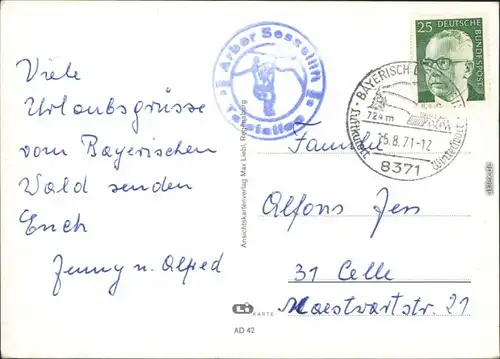 Viele
Urlaubsgrüsse
vom Bayerischen
Wald senden
Euch
Jenny u. Alfred
Arber Sessellift
Talstation
25 DEUTSCHE
BUNDESPOST
724 m
25.8.71-12
8371
Luftkurort
Ansichtskartenverlag Max Liebl, Regensburg
Familie
Alfons Jess
31 Celle
Maestwartstr. 21
Li KARTE
AD 42